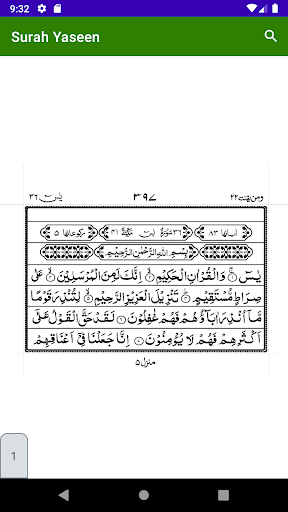 9:32
Surah Yaseen
یٰسٓ ٣٦ ٣٩٧ ومن یقنت ٢٢
رکوعاتها ٥ ٣٦ سُوْرَةُ یٰسٓ مَکِّیَّةٌ ٤١ اٰیاتها ٨٣
بِسْمِ اللهِ الرَّحْمٰنِ الرَّحِيْمِ
يٰسٓ ۚ وَالْقُرْاٰنِ الْحَكِيْمِ ۙ اِنَّكَ لَمِنَ الْمُرْسَلِيْنَ ۙ عَلٰى
صِرَاطٍ مُّسْتَقِيْمٍ ؕ تَنْزِيْلَ الْعَزِيْزِ الرَّحِيْمِ ۙ لِتُنْذِرَ قَوْمًا
مَّاۤ اُنْذِرَ اٰبَآؤُهُمْ فَهُمْ غٰفِلُوْنَ لَقَدْ حَقَّ الْقَوْلُ عَلٰٓى
اَكْثَرِهِمْ فَهُمْ لَا يُؤْمِنُوْنَ اِنَّا جَعَلْنَا فِيْٓ اَعْنَاقِهِمْ
منزل ٥
1